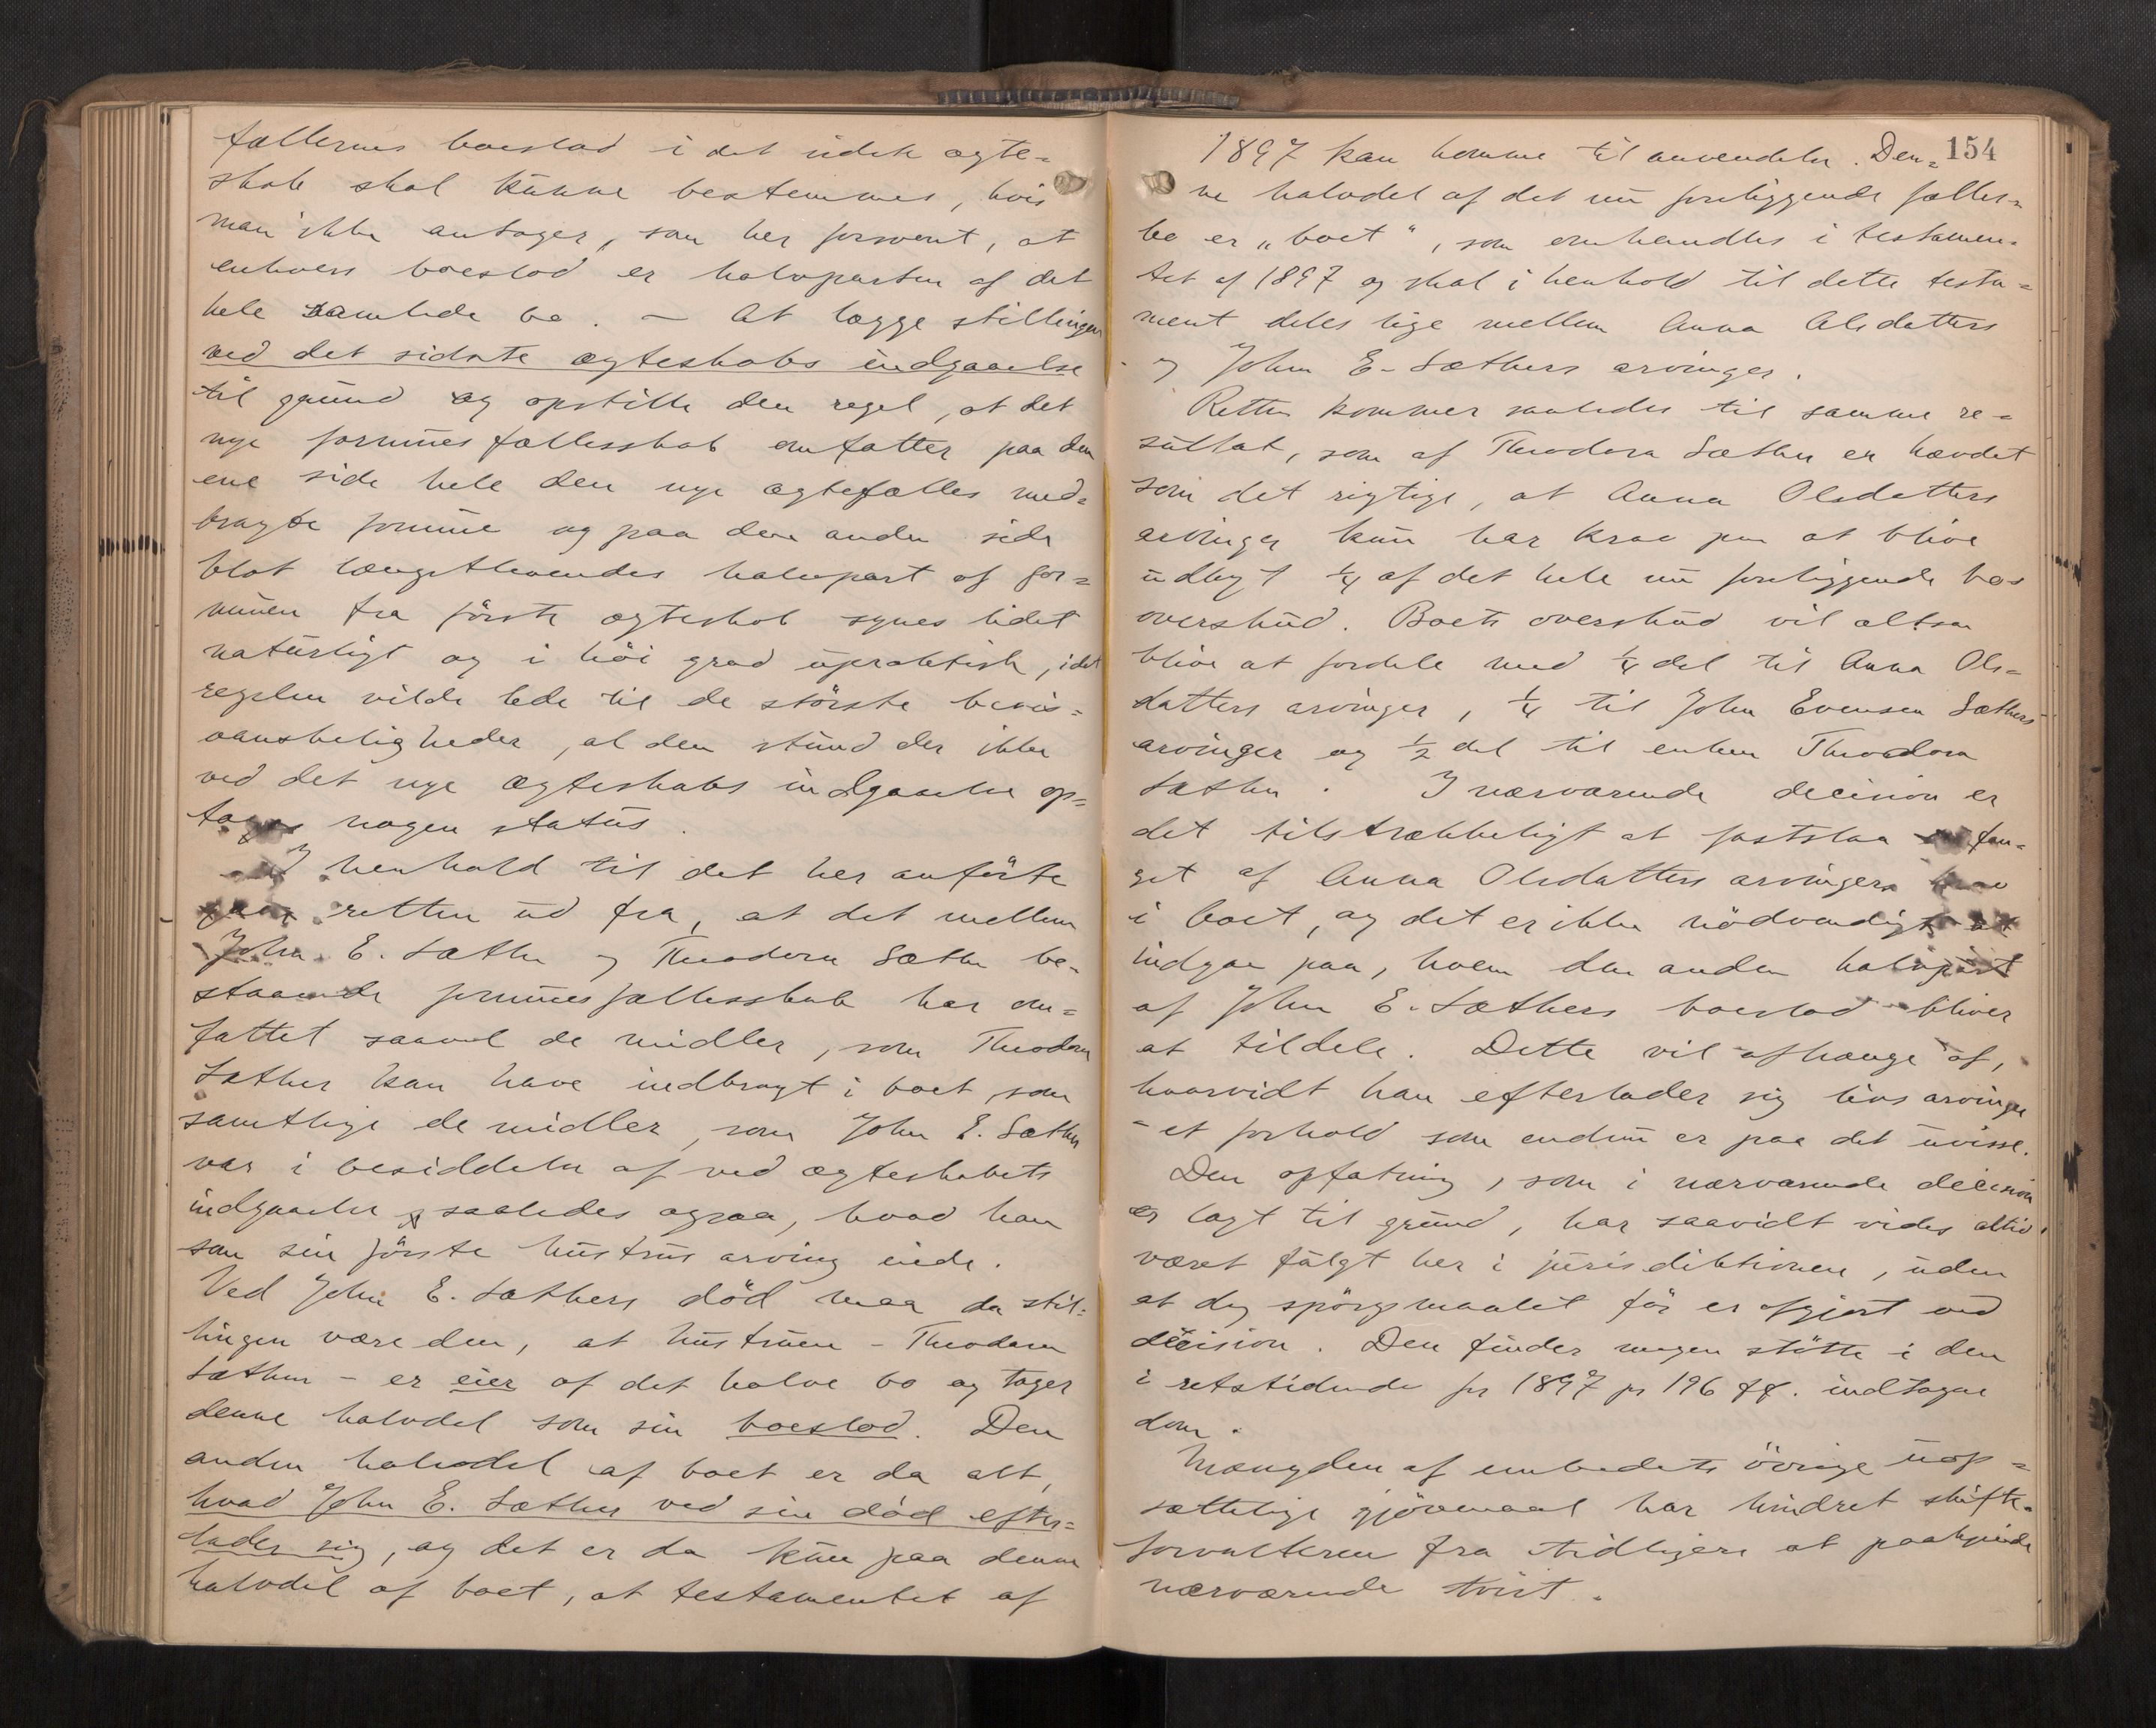 fællernes boeslod i det sidste ægte=
skab skal kunne bestemmes, hvis
man ikke antager, som her forment, at
enhvers boeslod er halvparten af det
hele samlede bo. — At lægge stillingen
ved det sidste ægteskabs indgaaelse
til grund og opstille den regel, at det
nye formuesfællesskab omfatter paa den
ene side hele den nye ægtefælles med=
bragte formue og paa den anden side
blot længstlevendes halvpart af for=
muen fra første ægteskab synes lidet
naturligt og i høi grad upraktisk, idet
regelen vilde lede til de største bevis=
vanskeligheder, al den stund der ikke
ved det nye ægteskabs indgaaelse op=
tages nogen status.
I henhold til det her anførte
gaar retten ud fra, at det mellem
John E. Sæther og Theodora Sæther be=
staaende formuesfællesskab har om=
fattet saavel de midler, som Theodora
Sæther kan have indbragt i boet, som
samtlige de midler, som John E. Sæther
var i besiddelse af ved ægteskabets
indgaaelse saaledes ogsaa, hvad han
som sin første hustrus arving eiede.
Ved John E. Sæthers død maa da stil=
lingen være den, at hustruen - Theodora
Sæther - er eier af det halve bo og tager
denne halvdel som sin boeslod. Den
anden halvdel af boet er da alt,
hvad John E. Sæther ved sin død efter=
lader sig, og det er da kun paa denne
halvdel af boet, at testamentet af
154
1897 kan komme til anvendelse. Den=
ne halvdel af det nu foreliggende fælles=
bo er „boet“, som omhandles i testamen=
tet af 1897 og skal i henhold til dette testa=
ment deles lige mellem Anna Olsdatters
og John E. Sæthers arvinger.
Retten kommer saaledes til samme re=
sultat, som af Theodora Sæther er hævdet
som det rigtige, at Anna Olsdatters
arvinger kun har krav paa at blive
udlagt ¼ af det hele nu foreliggende bos
overskud. Boets overskud vil altsaa
blive at fordele med ¼ del til Anna Ols=
datters arvinger, ¼ til John Evensen Sæthers
arvinger og ½ del til enken Theodora
Sæther. I nærværende decision er
det tilstrækkeligt at fastslaa omfan=
get af Anna Olsdatters arvingers krav
i boet, og det er ikke nødvendigt at
indgaa paa, hvem den anden halvpart
af John E. Sæthers boeslod bliver
at tildele. Dette vil afhænge af,
hvorvidt han efterlader sig livsarvinger
- et forhold som endnu er paa det uvisse.
Den opfatning, som i nærværende decision
er lagt til grund, har saavidt vides altid
været fulgt her i jurisdiktionen, uden
at dog spørgsmaalet før er afgjort ved
decision. Den finder megen støtte i den
i retstidende for 1897 pg 196 ff. indtagne
dom.
Mængden af embedets øvrige uop=
sættelige gjøremaal har hindret skifte=
forvalteren fra tidligere at paakjende
nærværende tvist.